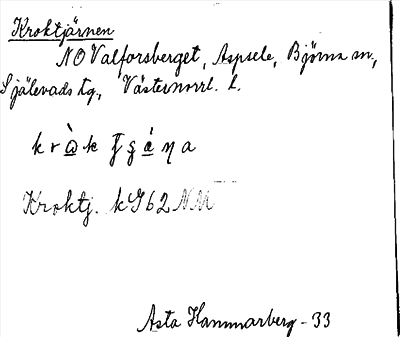 Kroktjärnen
NO Valforsberget, Aspsele, Björna sn,
Själevads tg., Västernorrl. l.
Kroktj. kG62 NM
Asta Hammarberg - 33